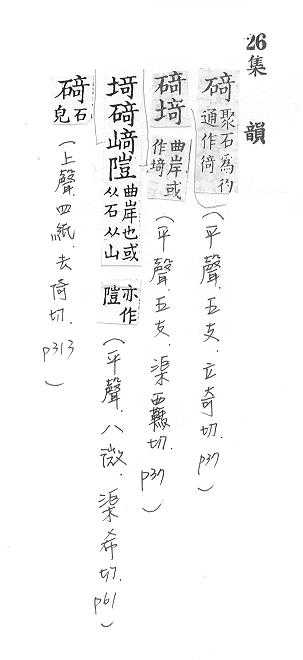 26集 韻
碕 聚石爲彴通作徛 (平聲.五支.立奇切.p37)
碕埼 曲岸或作埼 (平聲.五支.渠羈切.p37)
埼碕崎隑 曲岸也或从石从山 亦作隑 (平聲.八微.渠希切.p61)
碕 石皃 (上聲四紙.去倚切.p313)